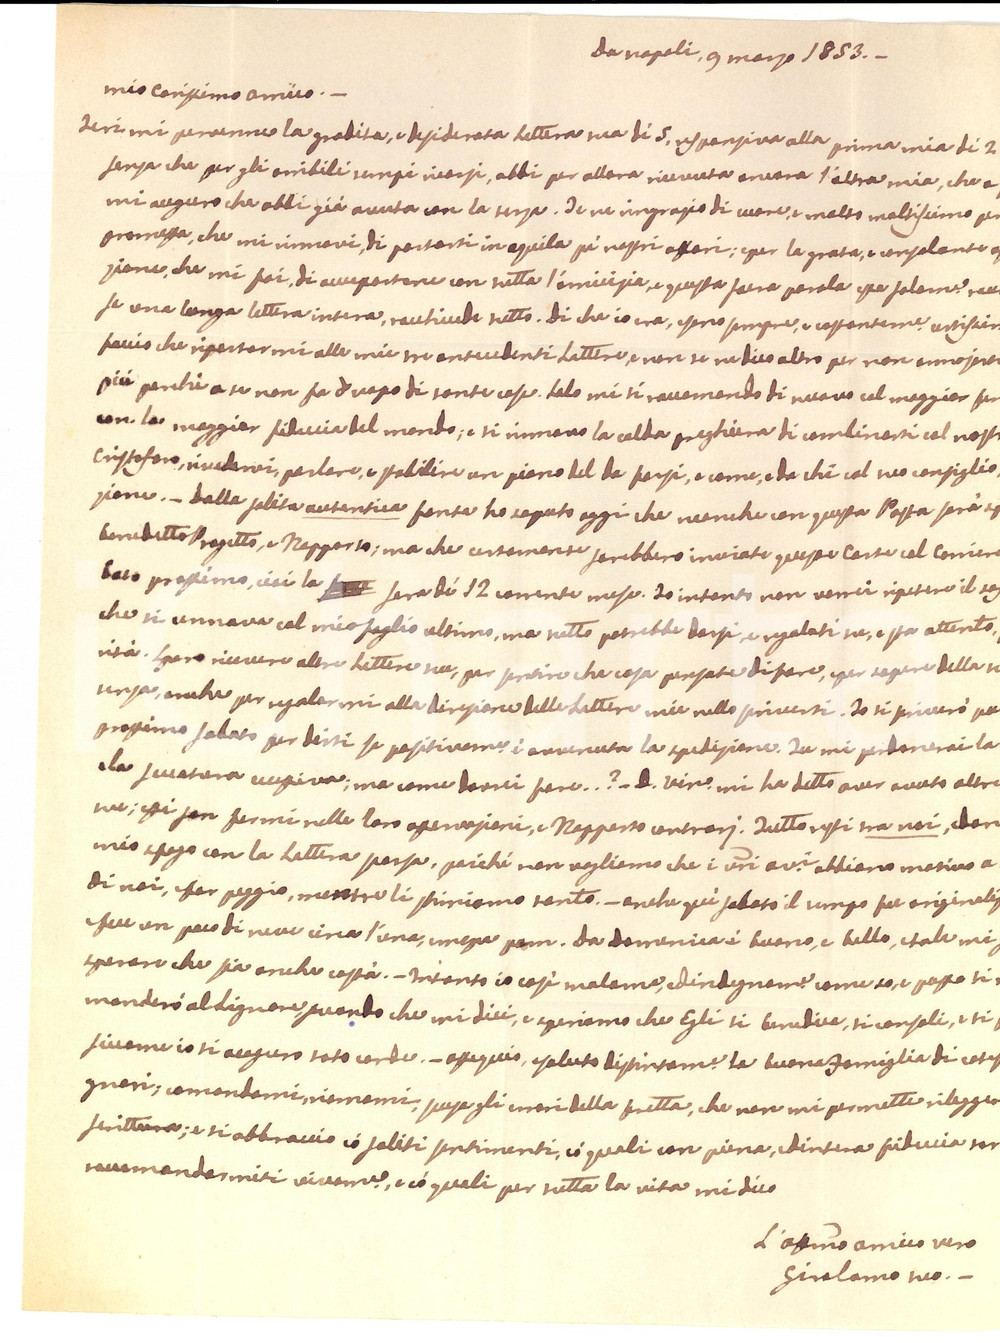 Da Napoli, 9 marzo 1853. —
Mio Carissimo Amico. —
Ieri mi pervenne la gradita, e desiderata Lettera tua di 5, responsiva alla prima mia di 2
senza che per gli orribili tempi scorsi, abbi per allora ricevuta ancora l'altra mia, che
mi auguro che abbi già avuta con la terza. Te ne ringrazio di cuore, e molto moltissimo per
promessa, che mi rinnovi, di portarti in Aquila pe' nostri affari; e per la grata, e consolante
zione, che mi fai, di accettarne con tutta l'amicizia, e questa sacra parola essa solam.e
se una lunga lettera intera, racchiude tutto. Di che io era, e sono sempre, e costantem.e certissim
faccio che riportarmi alle mie tre antecedenti Lettere, e non te ne dico altro per non annojart
più perchè a te non fa d'uopo di tante cose. Solo mi ti raccomando di nuovo col maggior
con la maggior fiducia del mondo; e ti rinnovo la calda preghiera di combinarti col nostr
Cristoforo, vedervi, parlare, e stabilire un piano del da farsi, e come, e da chi col tuo consiglio,
zione. — Dalla solita autentica fonte ho saputo oggi che neanche con questa Posta sarà
benedetto Progetto, e Rapporto; ma che certamente sarebbero inviate queste Carte col Corriere
bato prossimo, cioè la sera di 12 corrente mese. Io intanto non vorrei ripetere il
che ti cennava col mio foglio ultimo, ma tutto potrebbe darsi, e regolati tu, e sta attento,
rità. Spero ricevere altre Lettere tue, per sentire che cosa pensate di fare, e per sapere della
tenza, anche per regolarmi alla direzione delle Lettere mie nello scriverti. Io ti scriverò
prossimo sabato per dirti se positivam.e è avvenuta la spedizione. Tu mi perdonerai la
la seccatura eccessiva; ma come dovrei fare...? — D. Vin.o mi ha detto aver avuto altre
tue; essi son fermi nelle loro osservazioni, e Rapporto contrarj. Tutto resti tra noi,
mio sfogo con la Lettera scorsa, poichè non vogliamo che i abbiano motivo a
di noi, e far peggio, mentre li stimiamo tanto. — Anche quì sabato il tempo fu
e fece un poco di neve circa l'una, mezza pom. Da Domenica è buono, e bello, e tale mi
sperare che sia anche costà. — Intanto io così malam.e, ed indegnam.e come so, e posso ti
manderò al Signore, secondo che mi dici, e speriamo che Egli ti benedica, ti consoli, e ti
siccome io ti auguro toto corde. — Ossequio, e saluto distintam.e la buona Famiglia di
gnori; comandami, riamami, scusa gli errori della fretta, che non mi permette rilegger
scrittura; e ti abbraccio co' soliti sentimenti, co' quali con piena, ed intera fiducia
raccomandarmiti vivam.e, e co' quali per tutta la vita mi dico
L'affmo amico vero
Girolamo tuo. —